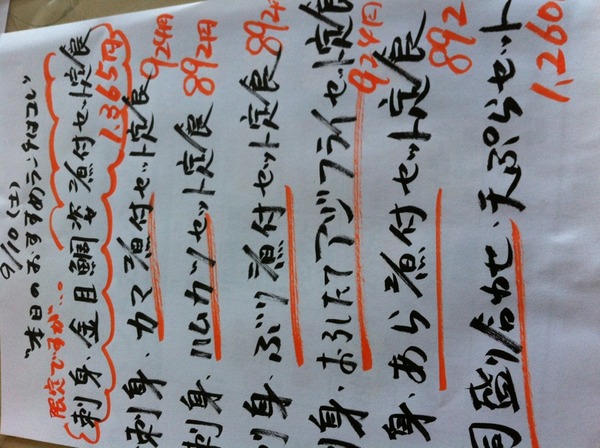 9/10(土)
"本日のおすすめランチはコレ"
限定ですが...
刺身・金目鯛姿煮付セット定食
1,365円
刺身・カマ煮付セット定食 924円
刺身・ハムカツセット定食 892円
身・ぶり煮付セット定食 892
身・おろしたてアジフライセット定食 924円
身・あら煮付セット定食 892
盛り合わせ・天ぷらセット 1,260